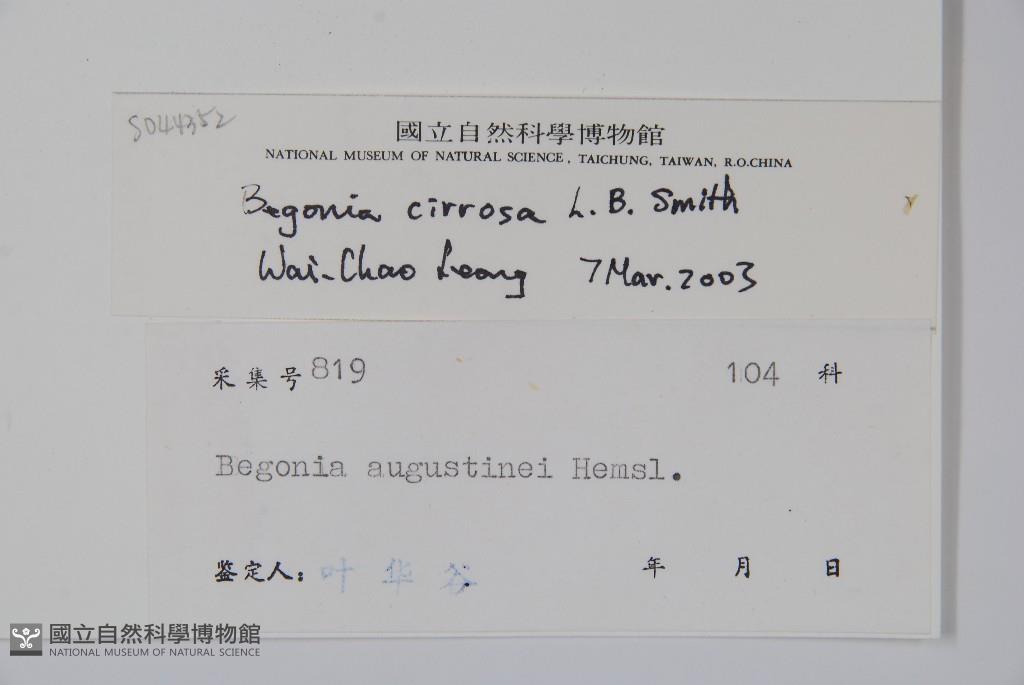 S044352
國立自然科學博物館
NATIONAL MUSEUM OF NATURAL SCIENCE, TAICHUNG, TAIWAN, R.O.CHINA
Begonia cirrosa L. B. Smith
Wai-Chao Leong 7 Mar. 2003
采集号 819 104 科
Begonia augustinei Hemsl.
鉴定人: 叶华谷 年 月 日
國立自然科學博物館
NATIONAL MUSEUM OF NATURAL SCIENCE